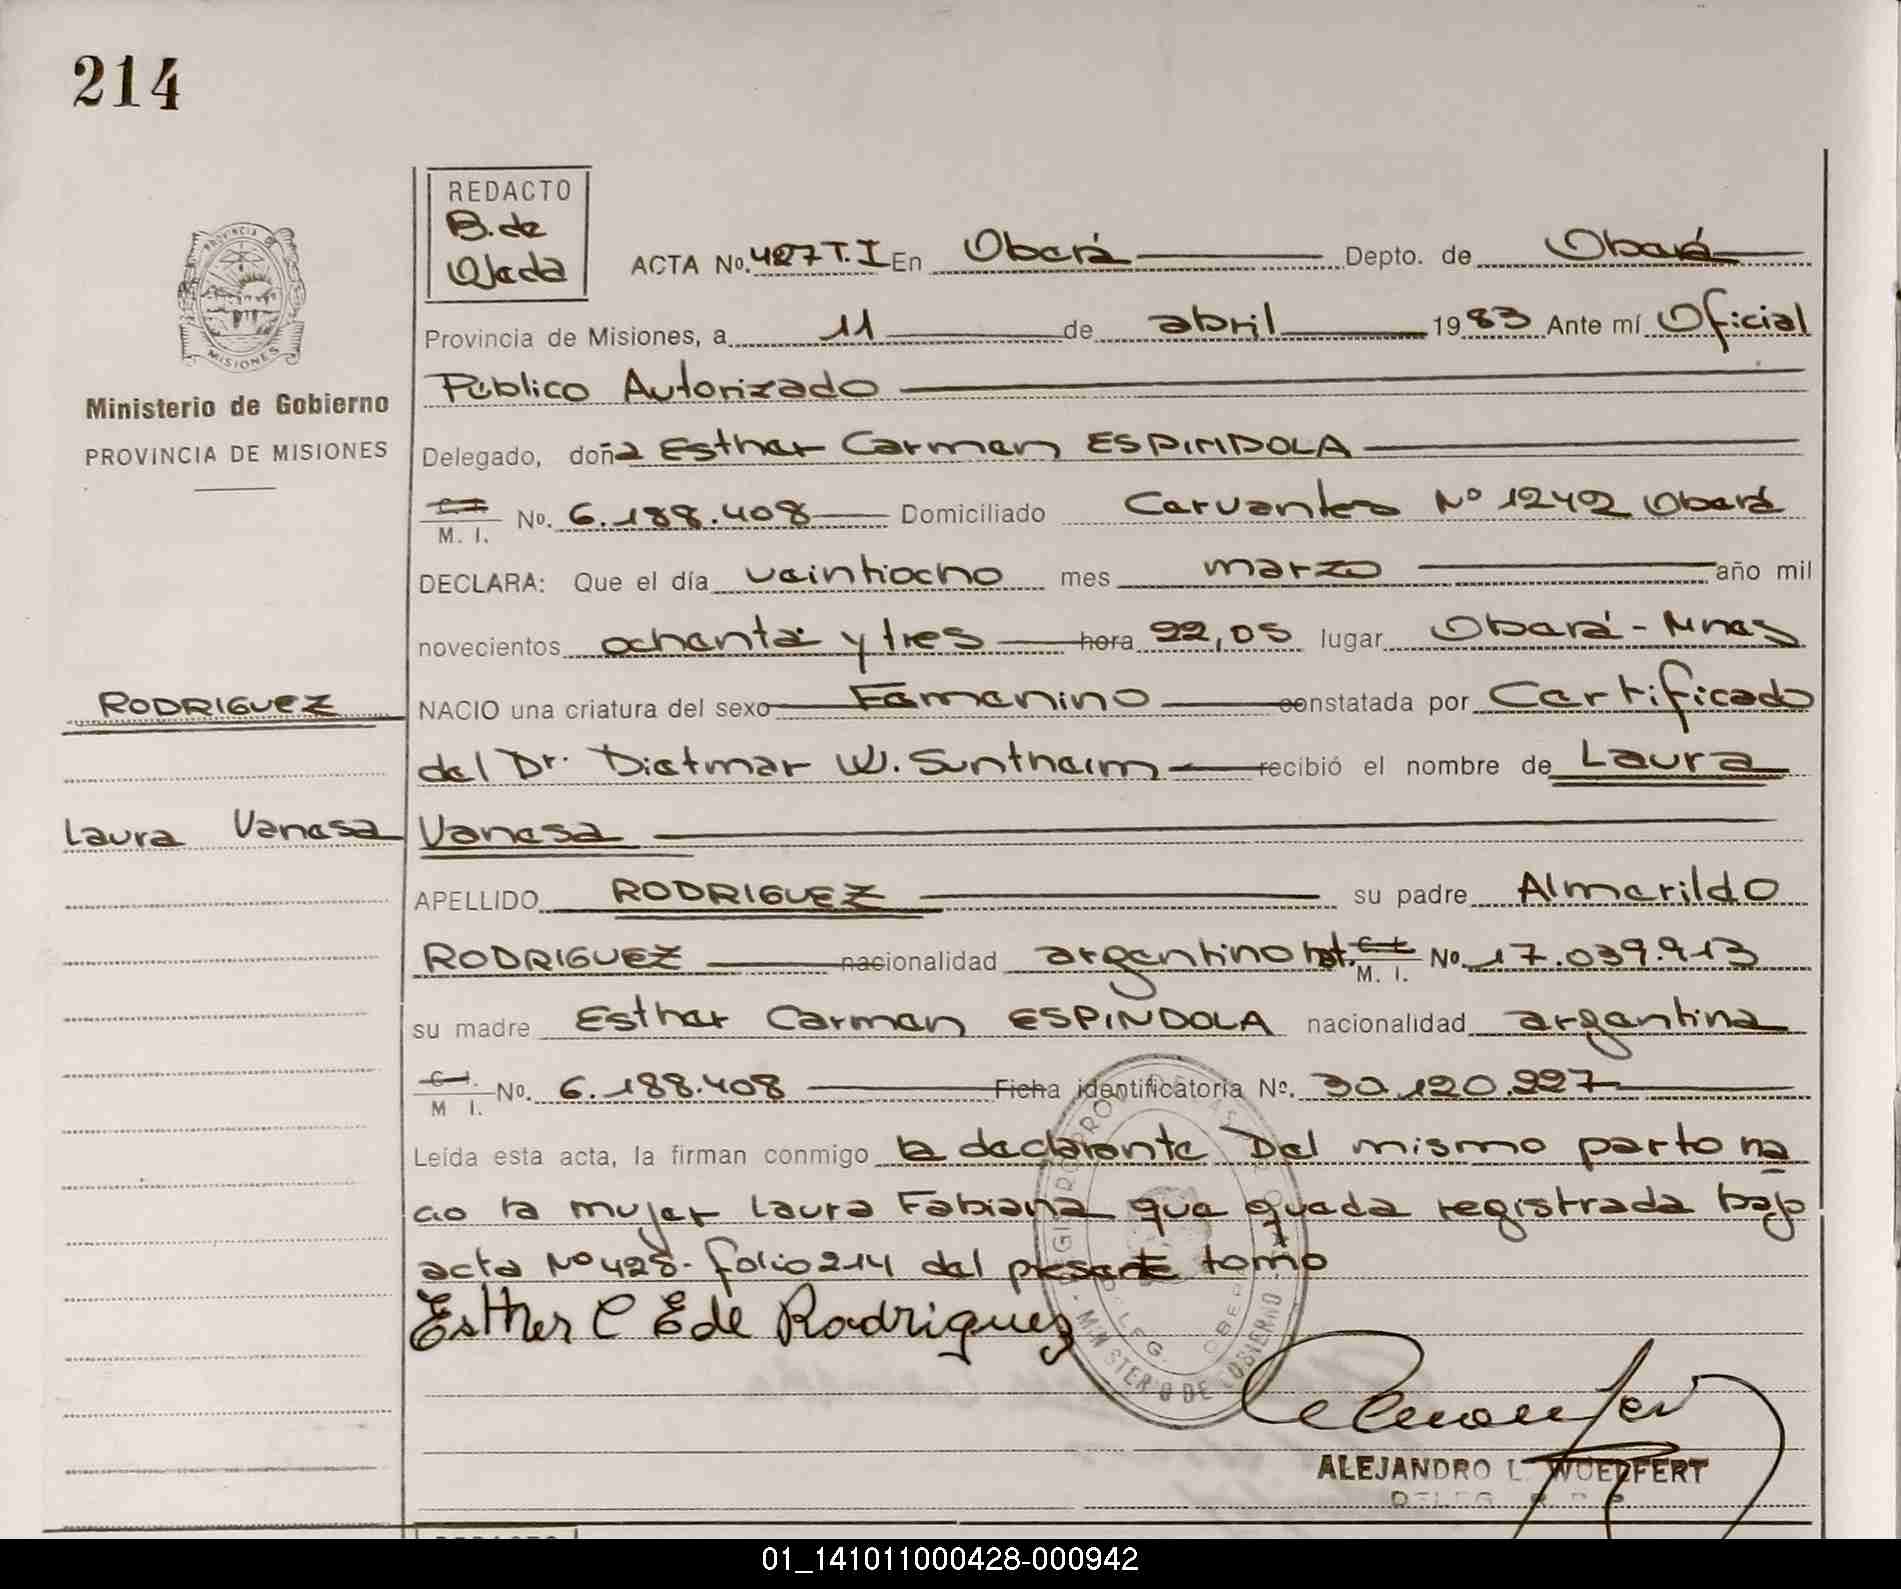 214
REDACTO
B. de
Ojeda
PROVINCIA DE
MISIONES
Ministerio de Gobierno
PROVINCIA DE MISIONES
ACTA No. 427 T. I En Oberá Depto. de Oberá
Provincia de Misiones, a 11 de abril 1983 Ante mí Oficial
Público Autorizado
Delegado, doña Esther Carmen ESPINDOLA
C. I.
M. I. No. 6.188.408 Domiciliado Cervantes Nº 1242 Oberá
DECLARA: Que el día veintiocho mes marzo año mil
novecientos ochenta y tres hora 22,05 lugar Oberá - Mnes
RODRIGUEZ
NACIO una criatura del sexo Femenino constatada por Certificado
del Dr. Dietmar W. Suntheim recibió el nombre de Laura
Laura Vanesa
Vanesa
APELLIDO RODRIGUEZ su padre Almerildo
RODRIGUEZ nacionalidad argentino C. I.
M. I. No. 17.039.913
su madre Esther Carmen ESPINDOLA nacionalidad argentina
C. I.
M. I. No. 6.188.408 Ficha identificatoria Nº. 30.120.227
Leída esta acta, la firman conmigo la declarante Del mismo parto na
cio la mujer Laura Fabiana que queda registrada bajo
acta Nº 428 - folio 214 del presente tomo
Esther C E de Rodriguez
MINISTERIO DE GOBIERNO
ALEJANDRO L. WOELFERT
DELEG. R. P.
01_141011000428-000942